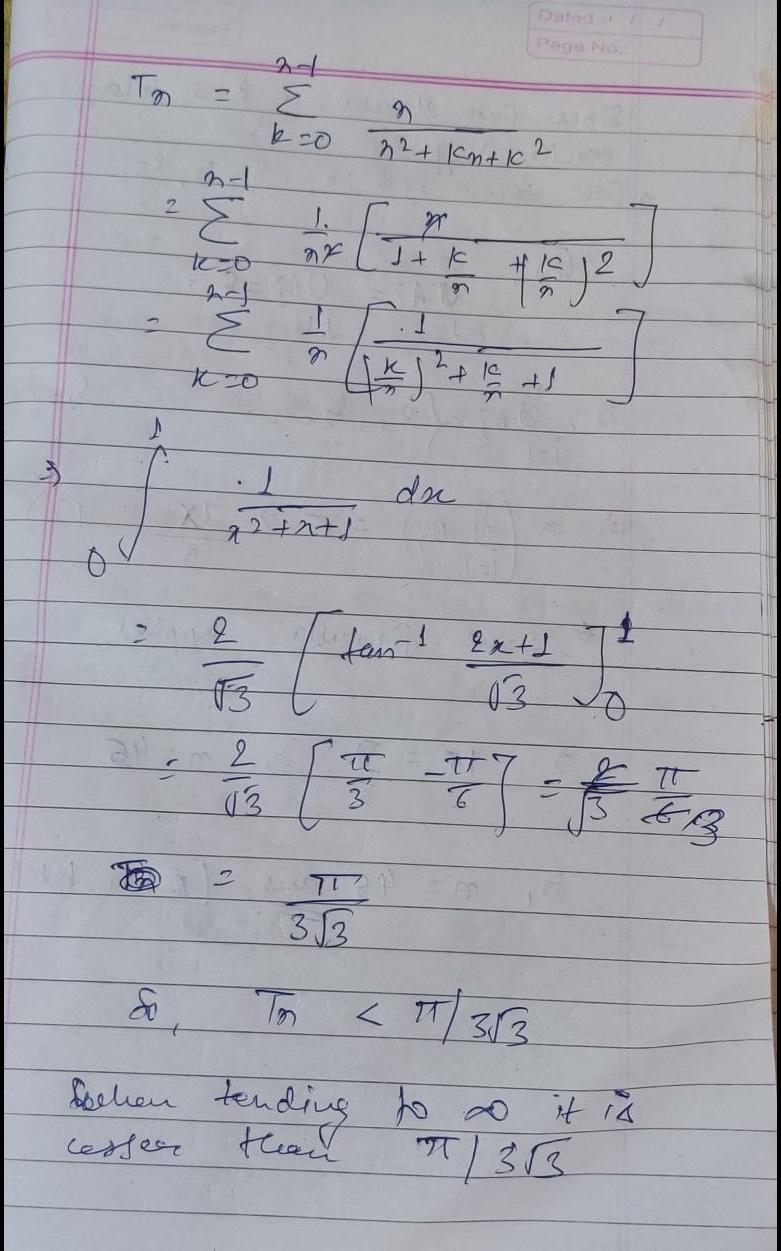 Dated : / /
Page No.:
Tn = Σ_{k=0}^{n-1} n/(n²+kn+k²)
= Σ_{k=0}^{n-1} 1/n² [n/(1+k/n+(k/n)²)]
= Σ_{k=0}^{n-1} 1/n [1/((k/n)²+k/n+1)]
⇒ ∫_0^1 1/(x²+x+1) dx
= 2/√3 [tan⁻¹ (2x+1)/√3]_0^1
= 2/√3 [π/3 - π/6] = 2/√3 π/6 3
= π/3√3
So, Tn < π/3√3
when tending to ∞ it is
lesser than π/3√3